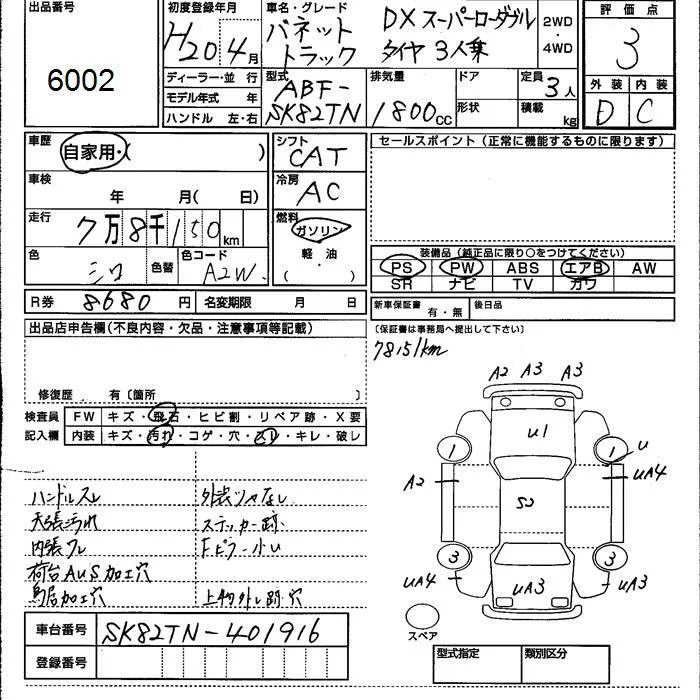 出品番号
6002
初度登録年月
H20年4月
車名・グレード
バネット
トラック
DXスーパーローダブル
タイヤ 3人乗
2WD
・
4WD
評価点
3
外装 内装
D C
ディーラー・並行
モデル年式 年
ハンドル 左・右
型式
ABF-
SK82TN
排気量
1800cc
ドア
形状
定員
3人
積載
kg
車歴
自家用・( )
車検
年 月( 日)
走行
7万8千150km
色
シロ
色替
色コード
A2W
シフト
CAT
冷房
AC
燃料
ガソリン
軽・油
( )
セールスポイント(正常に機能するものに限ります)
装備品(純正品に限り○をつけてください)
PS PW ABS エアB AW
SR ナビ TV カワ
R券 8680円 名変期限 月 日
新車保証書 有・無 後日品
(保証書は事務局へ提出して下さい)
78151km
出品店申告欄(不良内容・欠品・注意事項等記載)
修復歴 有〔箇所 〕
検査員
記入欄
FW キズ・飛石・ヒビ割・リペア跡・X要
内装 キズ・汚れ・コゲ・穴・スレ・キレ・破レ
ハンドルスレ 外装ツヤなし
天張汚れ ステッカー跡
内張ワレ Fピラー小U
荷台AUS加工穴
鳥居加工穴 上物外し跡穴
A2 A3 A3
U1
1 1 U
A2 UA4
S2
3 3
UA4 UA3 UA3
スペア
車台番号 SK82TN-401916
登録番号
型式指定 類別区分